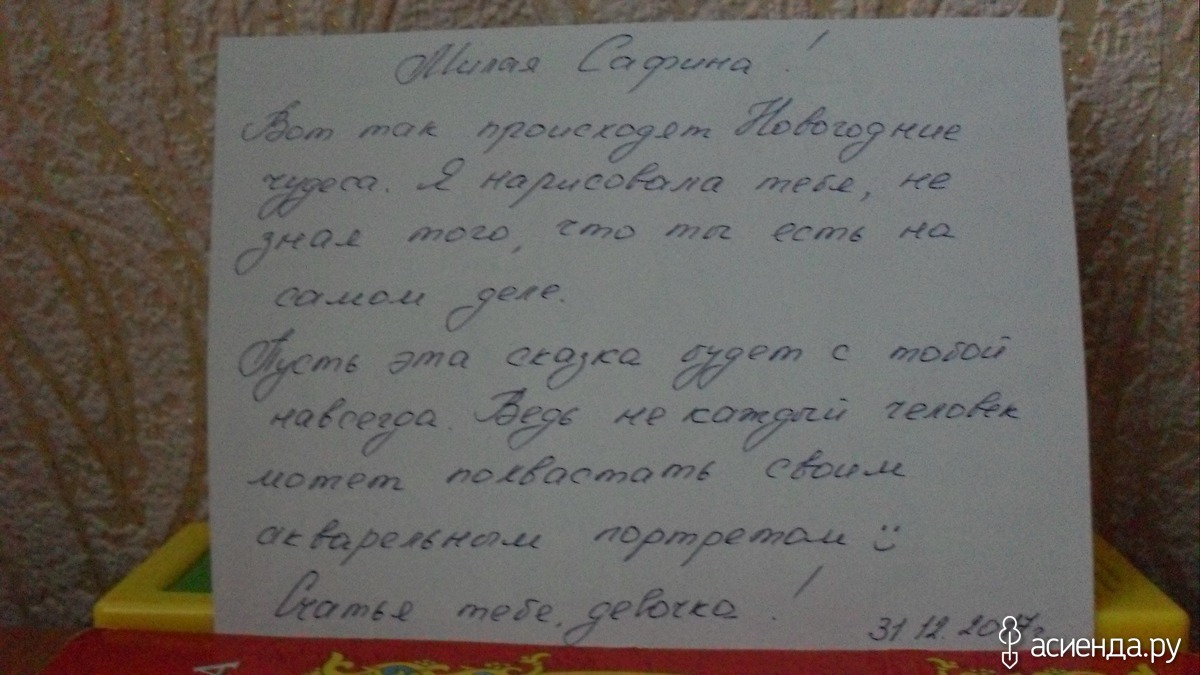 Милая Сафина!
Вот так происходят Новогодние
чудеса. Я нарисовала тебя, не
зная того, что ты есть на
самом деле.
Пусть эта сказка будет с тобой
навсегда. Ведь не каждый человек
может похвастать своим
акварельным портретом :)
Счатья тебе, девочка!
31.12.2017г.
асиенда.ру
А